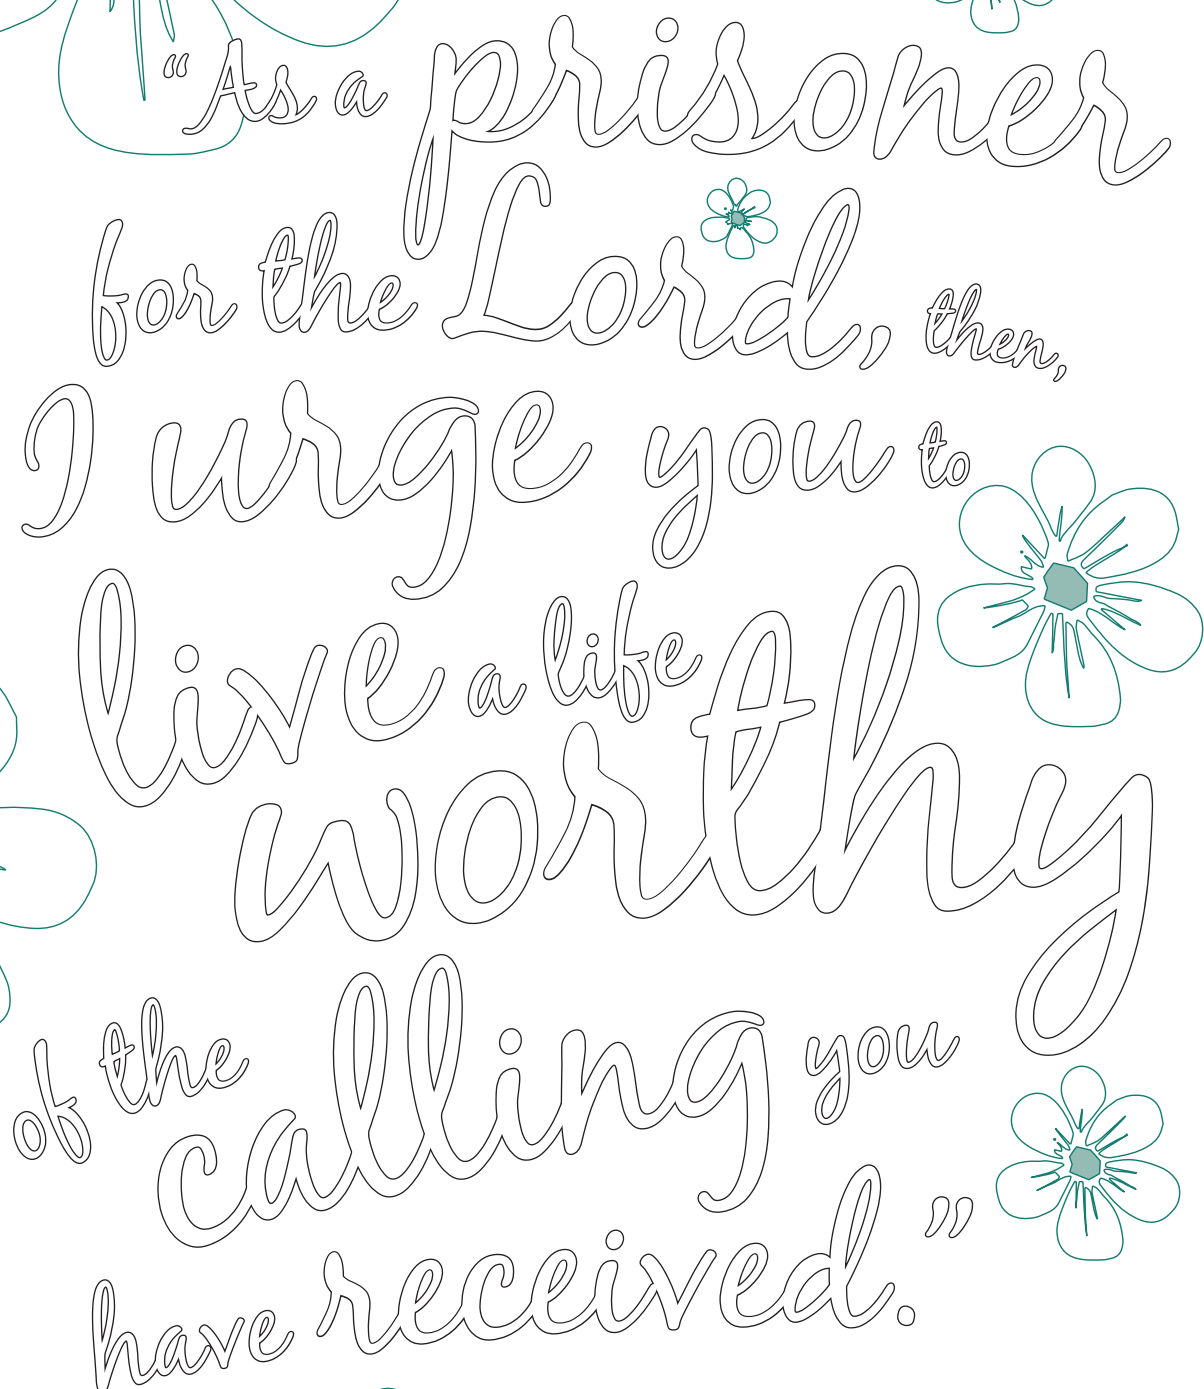 “As a prisoner
for the Lord, then,
I urge you to
live a life
worthy
of the calling you
have received.”